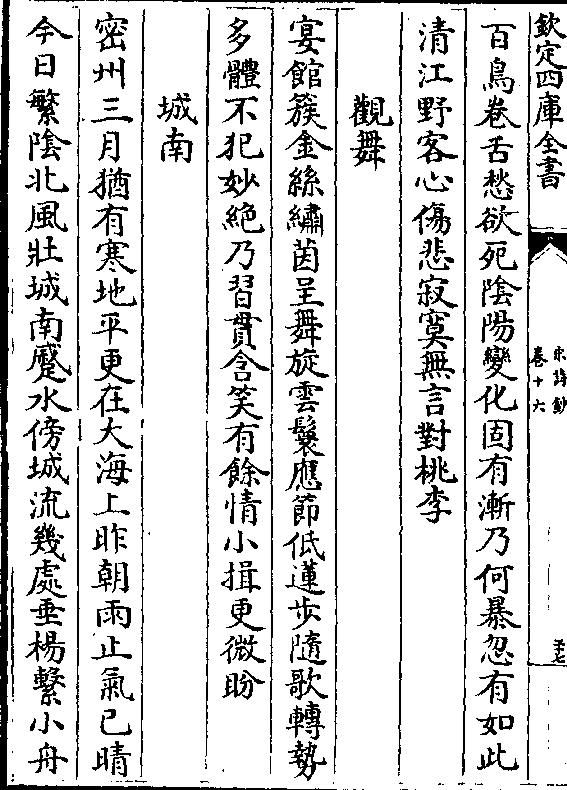 欽定四庫全書
宋詩鈔
卷十六
百鳥卷舌愁欲死陰陽變化固有漸乃何暴忽有如此
清江野客心傷悲寂寞無言對桃李
觀舞
宴館簇金絲繡茵呈舞旋雲鬟應節低蓮步隨歌轉勢
多體不犯妙絶乃習貫含笑有餘情小揖更微盼
城南
密州三月猶有寒地平更在大海上昨朝雨止氣已晴
今日繁陰北風壯城南蹙水傍城流幾處垂楊繫小舟